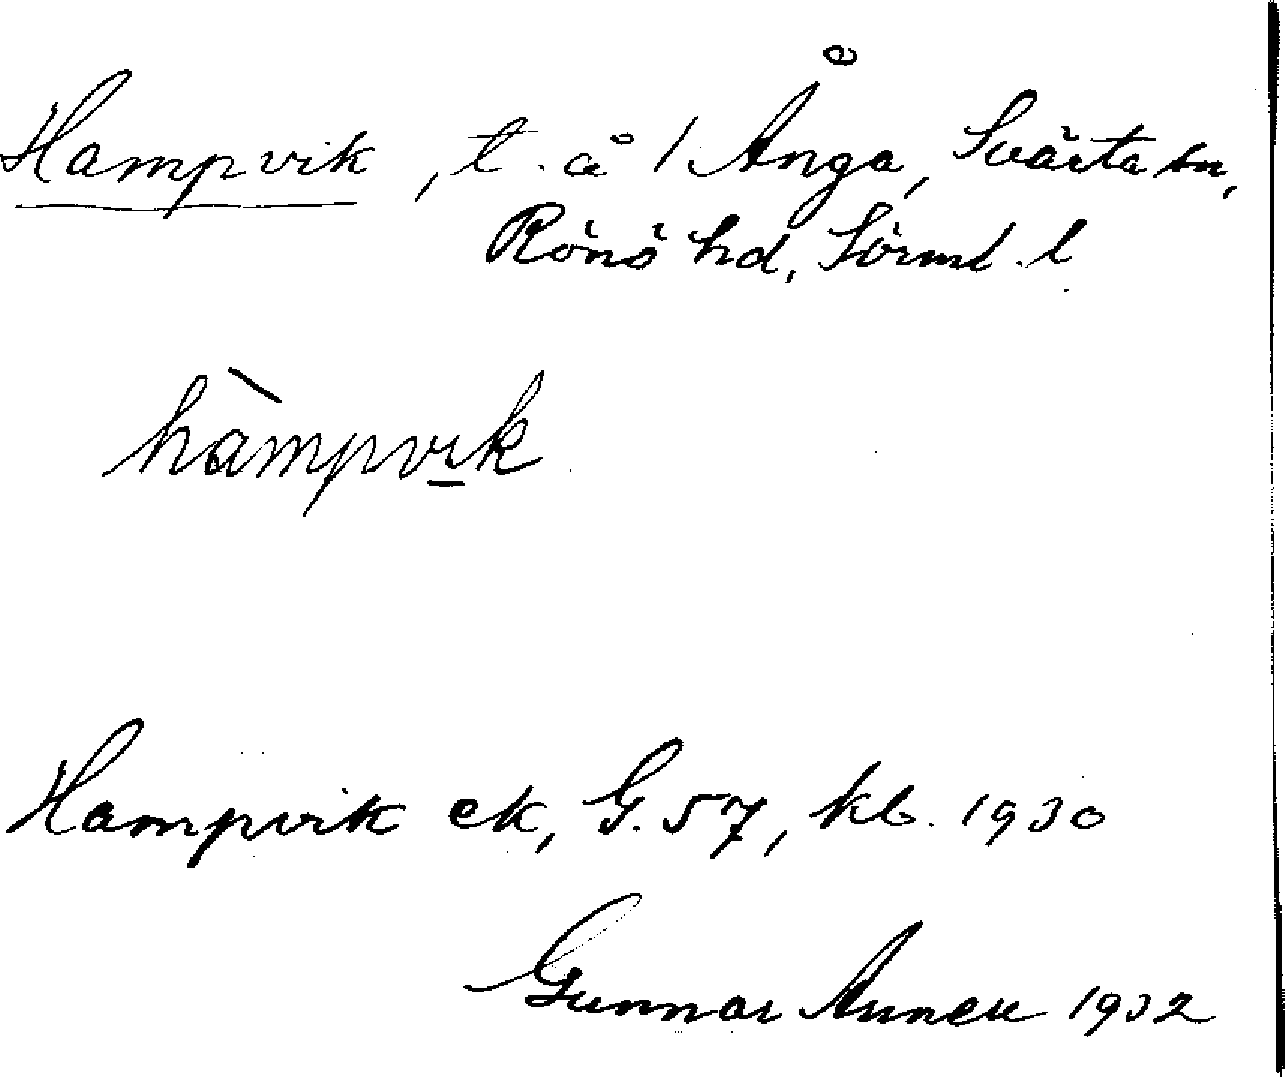 Hampvik, t. å / Ånga, Svärta sn,
Rönö hd, Sörml. l.
hàmpvik
Hampvik ek, G. 57, kb. 1930
Gunnar 1932